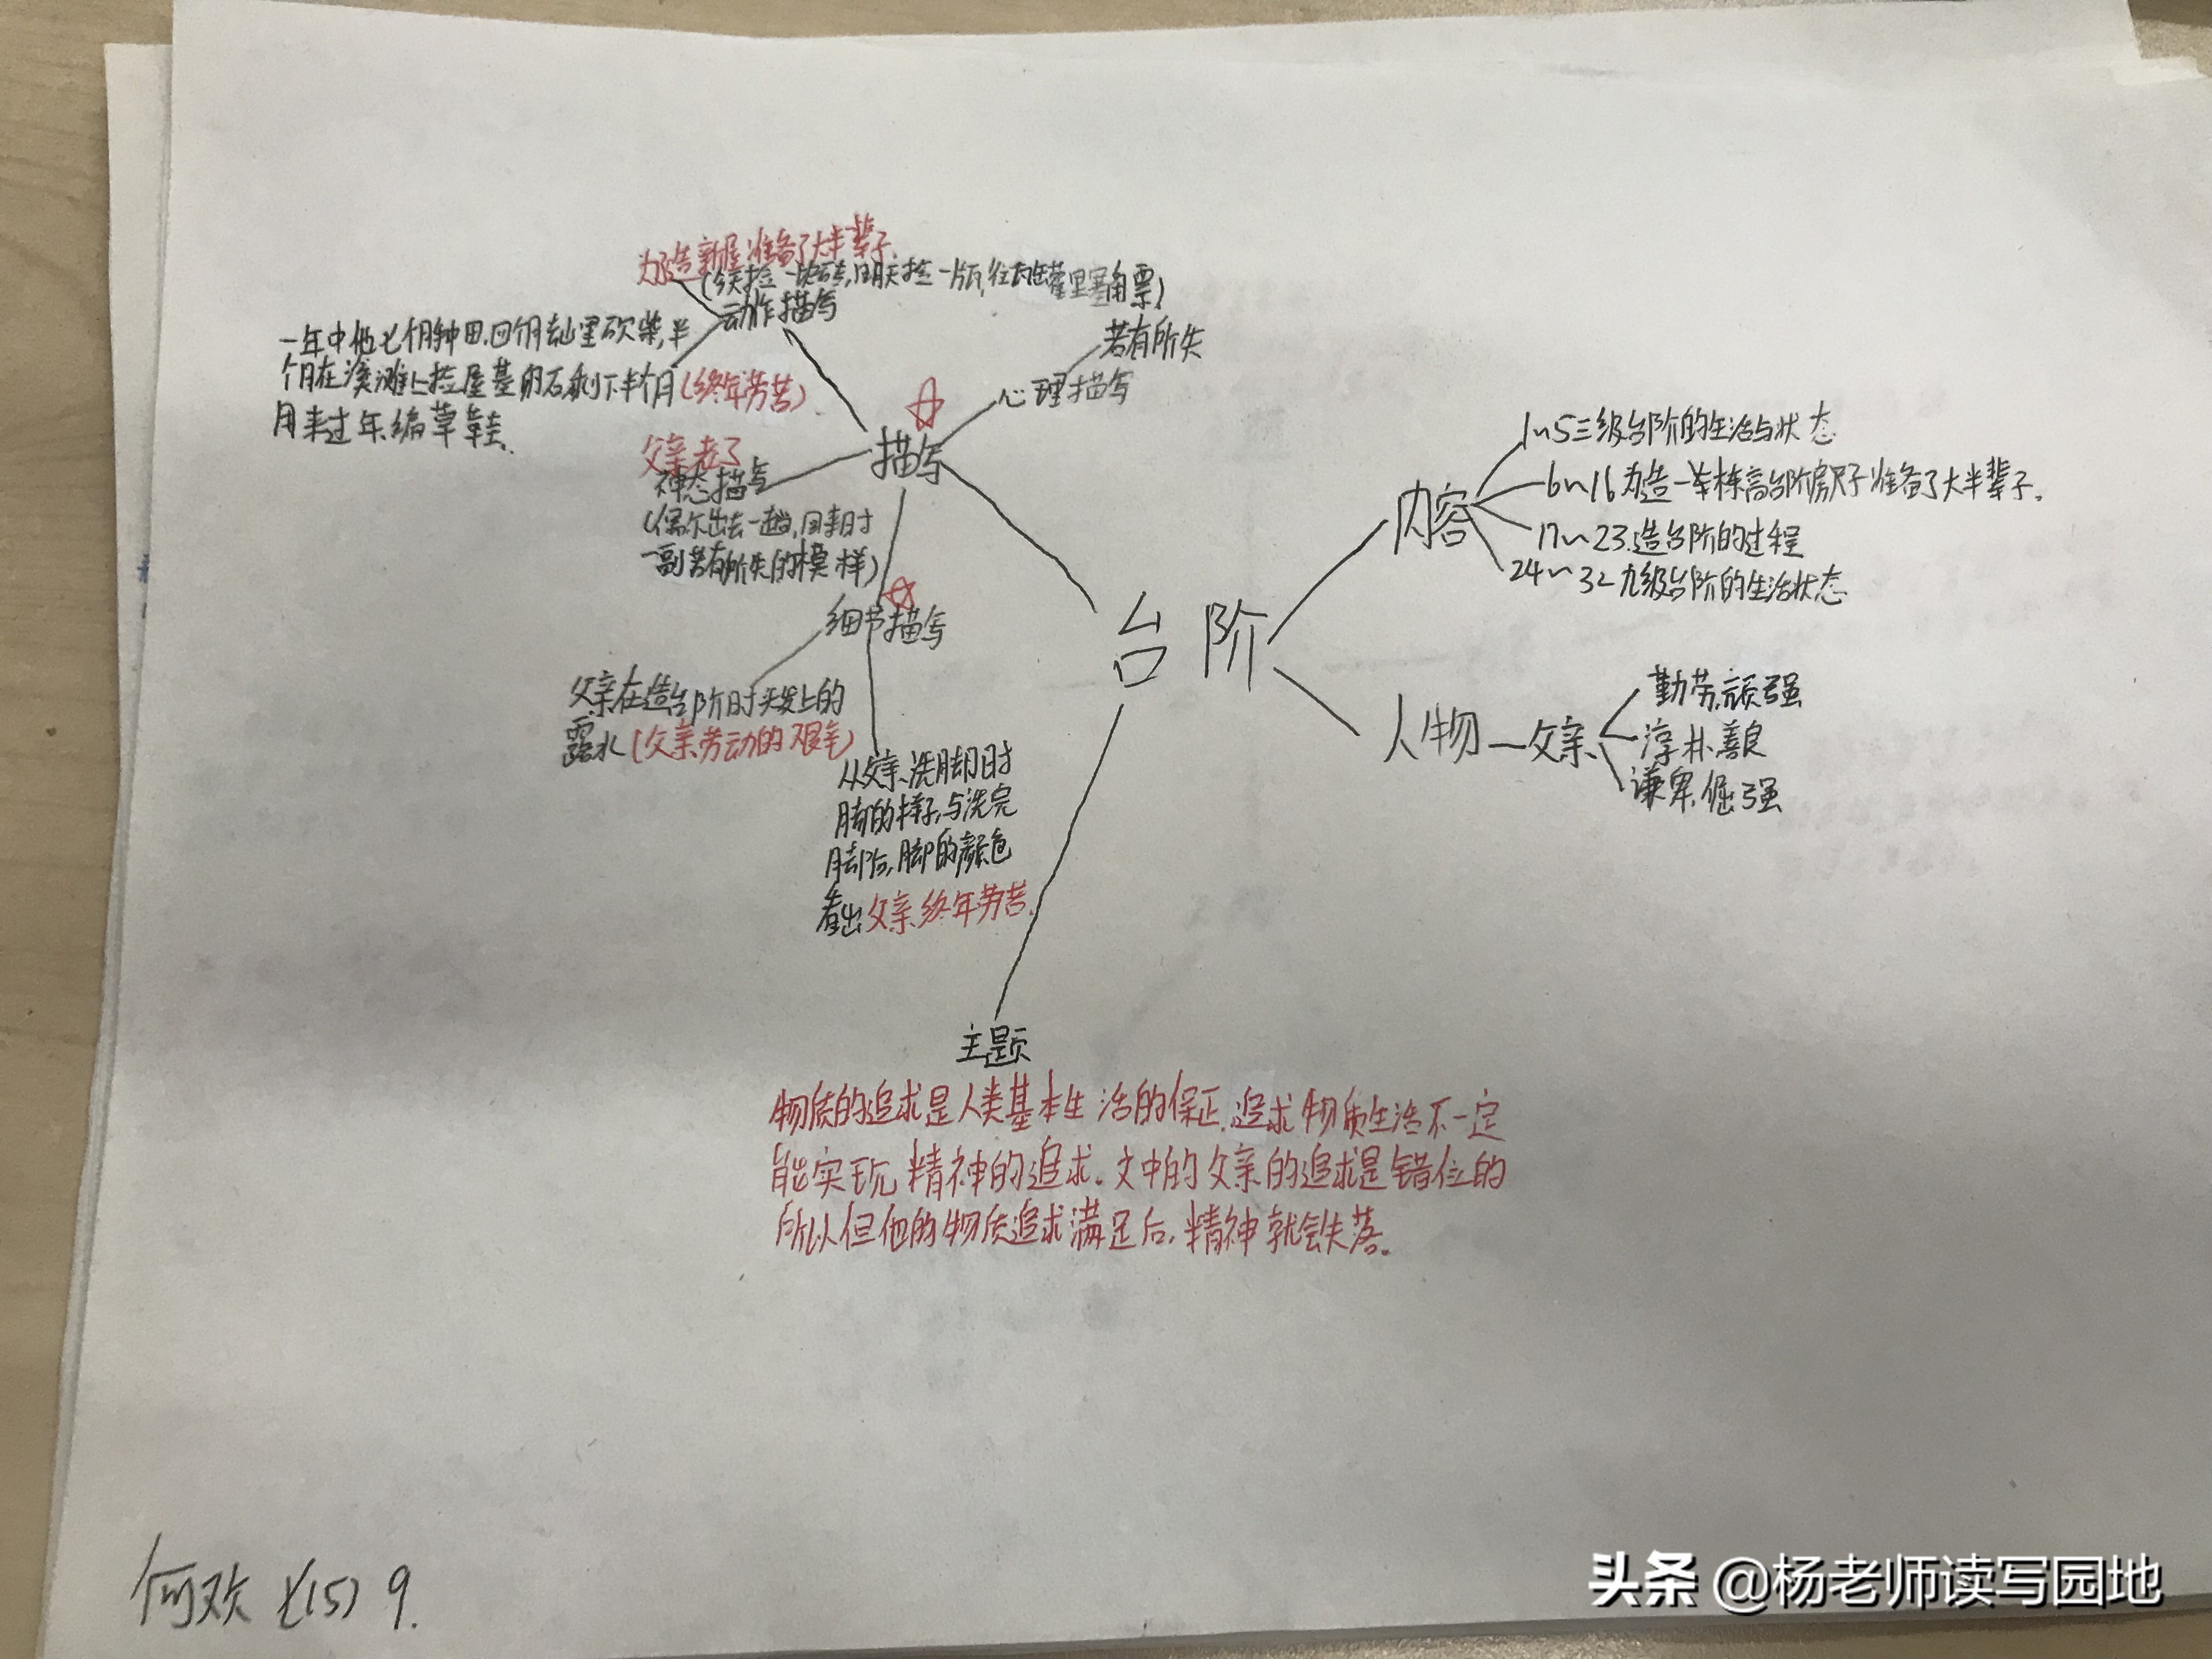 为造新屋准备了大半辈子.
(今天捡一块砖,明天捡一片瓦,往瓦罐里塞角票)
动作描写
一年中他七个月种田,四个月去山里砍柴,半
个月在溪滩上捡屋基卵石剩下半个月(终年劳苦)
用来过年、编草鞋.
若有所失
心理描写
描写
父亲老了
神态描写
(偶尔出去一趟,回来时
一副若有所失的模样)
细节描写
父亲在造台阶时头发上的
露水(父亲劳动的艰辛)
从父亲洗脚时
脚的样子,与洗完
脚后,脚的颜色
看出父亲终年劳苦.
台阶
内容
1~5三级台阶的生活与状态
6~16为造一栋高台阶房子准备了大半辈子.
17~23.造台阶的过程
24~32九级台阶的生活状态
人物—父亲
勤劳,顽强
淳朴.善良
谦卑.倔强
主题
物质的追求是人类基本生活的保证.追求物质生活不一定
能实现精神的追求.文中的父亲的追求是错位的
所以但他的物质追求满足后,精神就会失落.
何欢 七(15) 9.
头条 @杨老师读写园地